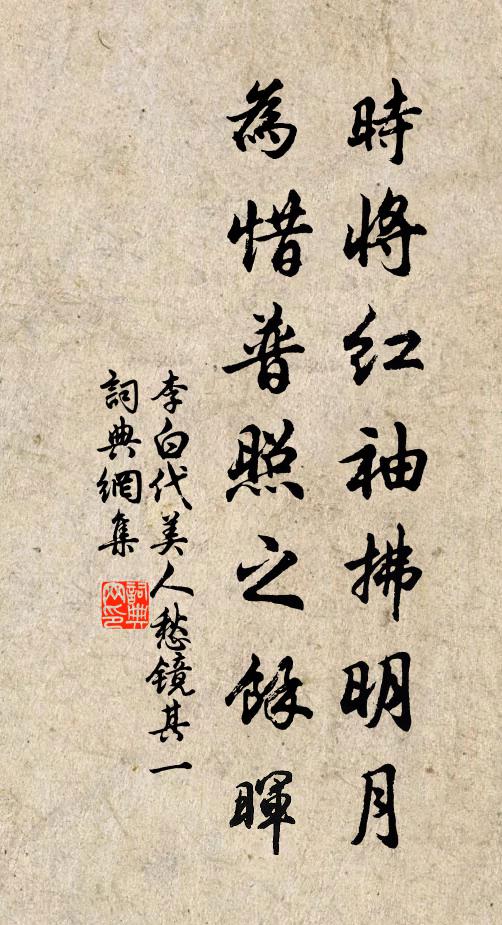 時將紅袖拂明月
為惜普照之餘暉
李白代美人愁鏡其一
詞典網集
詞典
网印